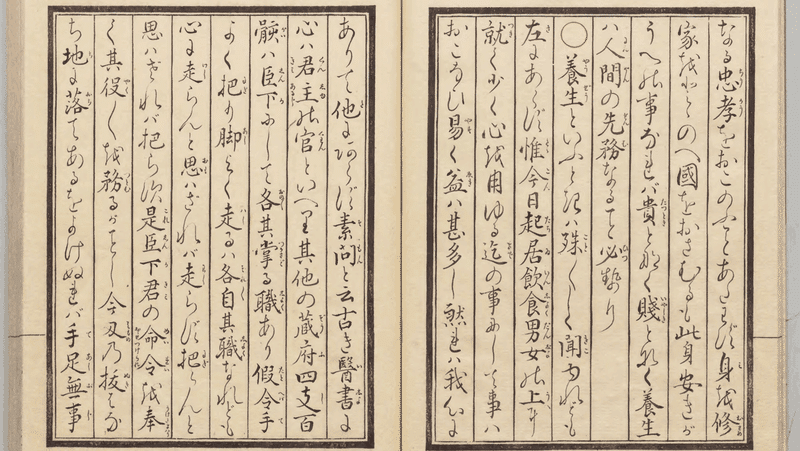 なる忠孝をおこのふことあたはず身を修
家をとゝのへ國をおさむるも此身安きが
うへの事なれバ貴となく賤となく養生
ハ人間の先務なること必せり
○養生といふときハ殊〱しく聞ゆれども
左にあらず惟今日起居飲食男女の上に
就て少く心を用ゆる迄の事にして事ハ
おこなひ易く益ハ甚多し然れハ我心に
ありて他にあらず素問と云古き醫書に
心ハ君主の官といへり其他の蔵府四支百
骸ハ臣下にして各其掌る職あり假令手
よく把り脚よく走るハ各自其職なれども
心に走らんと思ハざれバ走らず把らんと
思ハざれバ把らず是臣下君の命令を奉
て其役〱を務るがごとし今刄の抜はな
ち地に落てあるをよけぬれバ手足無事